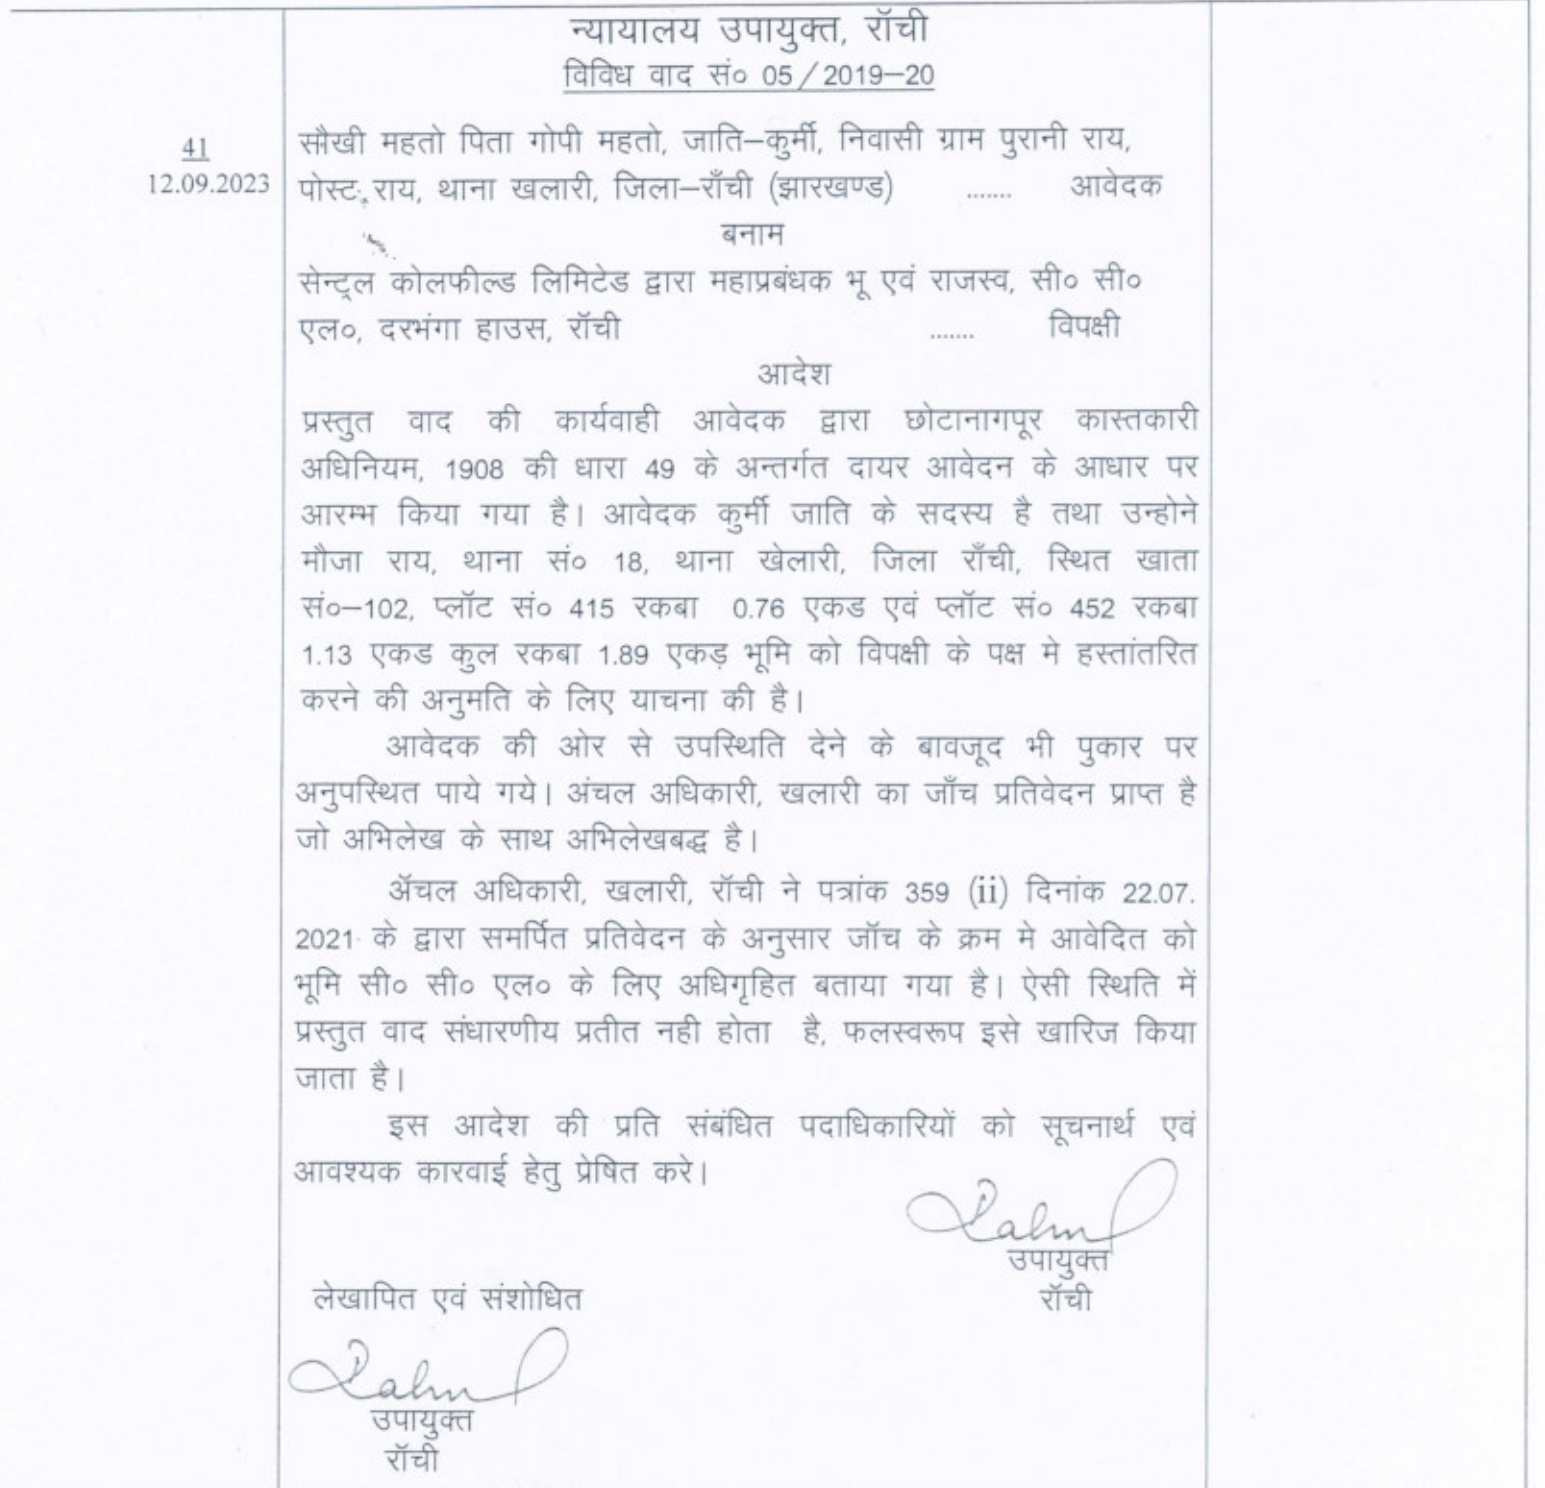 न्यायालय उपायुक्त, रॉची
विविध वाद सं० 05/2019–20
41
12.09.2023
सौखी महतो पिता गोपी महतो, जाति–कुर्मी, निवासी ग्राम पुरानी राय,
पोस्ट: राय, थाना खलारी, जिला–राँची (झारखण्ड) ....... आवेदक
बनाम
सेन्ट्रल कोलफील्ड लिमिटेड द्वारा महाप्रबंधक भू एवं राजस्व, सी० सी०
एल०, दरभंगा हाउस, रॉची ....... विपक्षी
आदेश
प्रस्तुत वाद की कार्यवाही आवेदक द्वारा छोटानागपूर कास्तकारी
अधिनियम, 1908 की धारा 49 के अन्तर्गत दायर आवेदन के आधार पर
आरम्भ किया गया है। आवेदक कुर्मी जाति के सदस्य है तथा उन्होने
मौजा राय, थाना सं० 18, थाना खेलारी, जिला राँची, स्थित खाता
सं०–102, प्लॉट सं० 415 रकबा 0.76 एकड एवं प्लॉट सं० 452 रकबा
1.13 एकड कुल रकबा 1.89 एकड़ भूमि को विपक्षी के पक्ष मे हस्तांतरित
करने की अनुमति के लिए याचना की है।
आवेदक की ओर से उपस्थिति देने के बावजूद भी पुकार पर
अनुपस्थित पाये गये। अंचल अधिकारी, खलारी का जाँच प्रतिवेदन प्राप्त है
जो अभिलेख के साथ अभिलेखबद्ध है।
ॲचल अधिकारी, खलारी, रॉची ने पत्रांक 359 (ii) दिनांक 22.07.
2021 के द्वारा समर्पित प्रतिवेदन के अनुसार जॉच के क्रम मे आवेदित को
भूमि सी० सी० एल० के लिए अधिगृहित बताया गया है। ऐसी स्थिति में
प्रस्तुत वाद संधारणीय प्रतीत नही होता है, फलस्वरूप इसे खारिज किया
जाता है।
इस आदेश की प्रति संबंधित पदाधिकारियों को सूचनार्थ एवं
आवश्यक कारवाई हेतु प्रेषित करे।
उपायुक्त
रॉची
लेखापित एवं संशोधित
उपायुक्त
रॉची